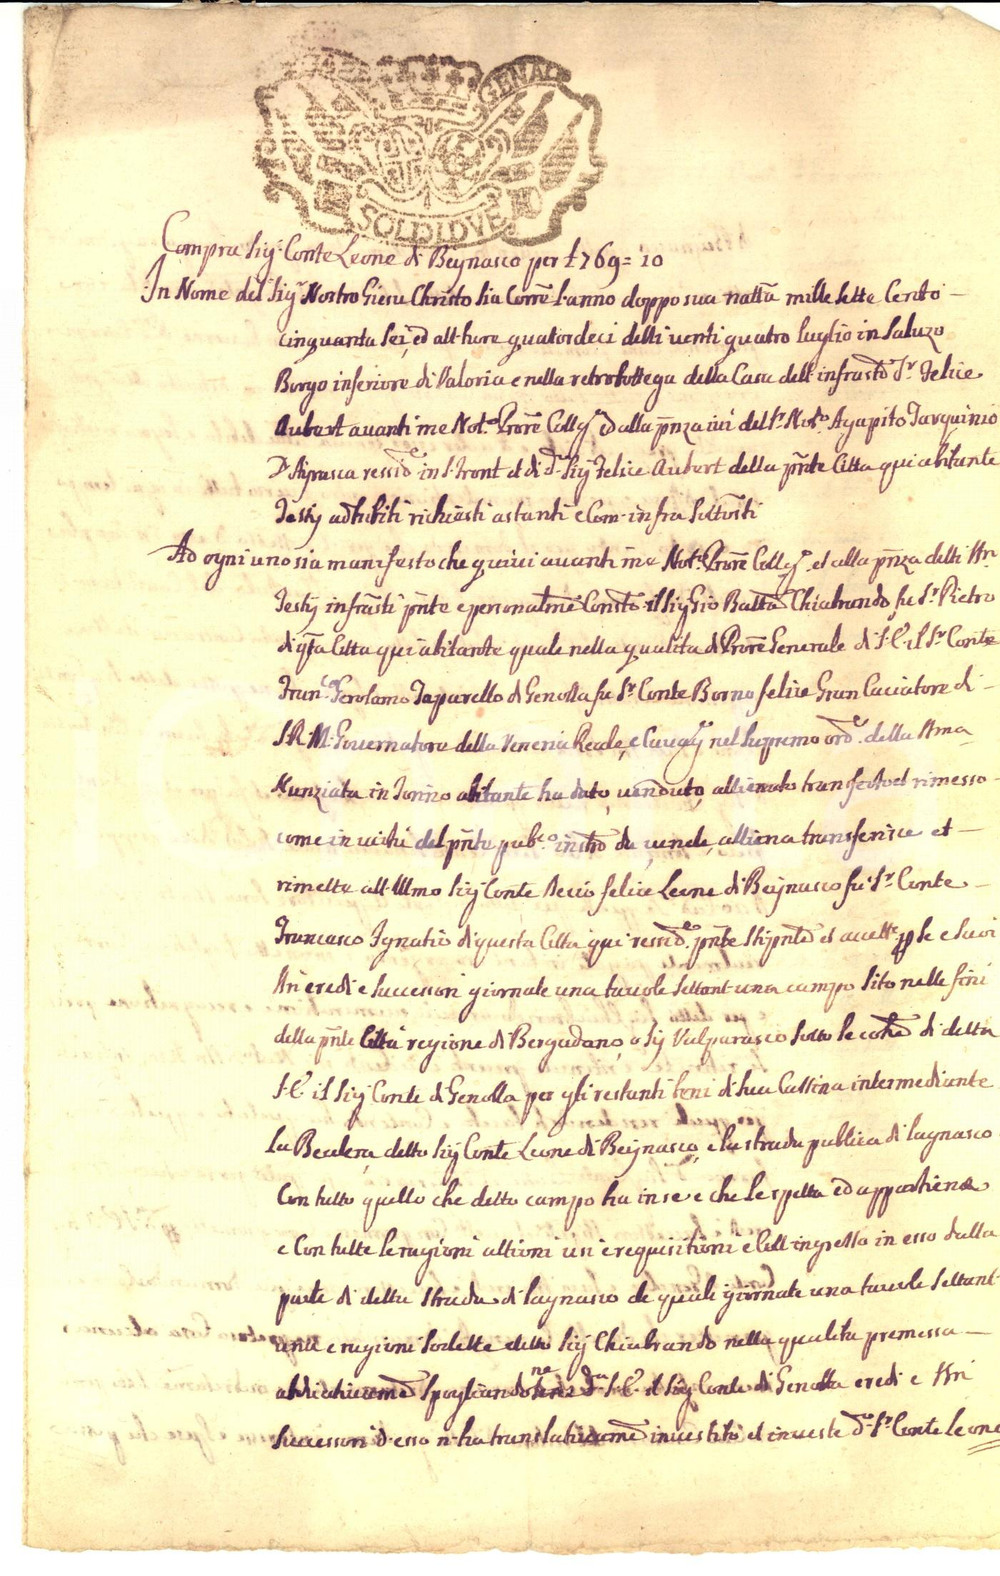 GENAL
SOLDI DVE
Compra Sig.r Conte Leone di Beÿnasco per £ 769=10
In Nome del Sig.r Nostro Giesu Christo sia Corr.e l'anno doppo sua natt.a mille sette Cento
cinquanta sei, ed all'hore quatordeci delli venti quatro luglio in Saluzo
Borgo inferiore di Valoria e nella retrobottega della Casa dell'infrast.o S.r Felice
Aubert avanti me Not.o Pror.e Coll.o ed alla p.nza ivi del S.r Not.o Agapito Tarquinio
D'Ayrasca ressid.e in S. Front et di d.o Sig. Felice Aubert della p.nte Citta qui abitante
Testÿ adhibiti richiesti astanti e Com'infra sottosti
Ad ogni uno sia manifesto che quivi avanti me Not.o Pror.e Coll.o et alla p.nza delli
Testÿ infra.sti p.nte e personalm.e Const.o il Sig Gio Batt.a Chiabrando fu S.r Pietro
di q.ta Citta qui abitante quale nella qualita di Pror.e Generale di S. E. il S.r Conte
Fran.co Gerolamo Taparello di Genolla fu S.r Conte Borno felice Gran Caciatore di
S. R. M. Governatore della Veneria Reale, e Cavag.r nel supremo ord.e della
Nunziata in Torino abitante ha dato, venduto, allienato transferto et rimesso
come in virtù del p.nte pub.co instr.o da, vende, alliena transferisce et
rimette all'Ill.mo Sig Conte Decio felice Leone di Beÿnasco fu S.r Conte
Francesco Ignatio di questa Citta qui ressid.e p.nte stip.nte et accett.e p. se e suoi
eredi e successori giornate una tavole settant'una campo sito nelle fini
della p.nte Città regione di Bergadano, o sÿ Valparasco sotto le coh.e di detta
S. E. il Sig Conte di Genolla per gli restanti beni di sua Cassina intermediante
La Bealera detto Sig Conte Leone di Beÿnasco, e la strada publica di lagnasco
Con tutto quello che detto campo ha in se e che le spetta ed appartiene
e Con tutte le ragioni attioni usi e requisitioni e Coll'ingresso in esso dalla
parte di detta strada di lagnasco de quali giornate una tavole settant'
una e ragioni sodette detto Sig Chiabrando nella qualita premessa
abdicativam.e spogliandone d.a S. E. il Sig Conte di Genolla eredi e
successori d'esso n'ha translativam.e investito et investe d.o S.r Conte Leone